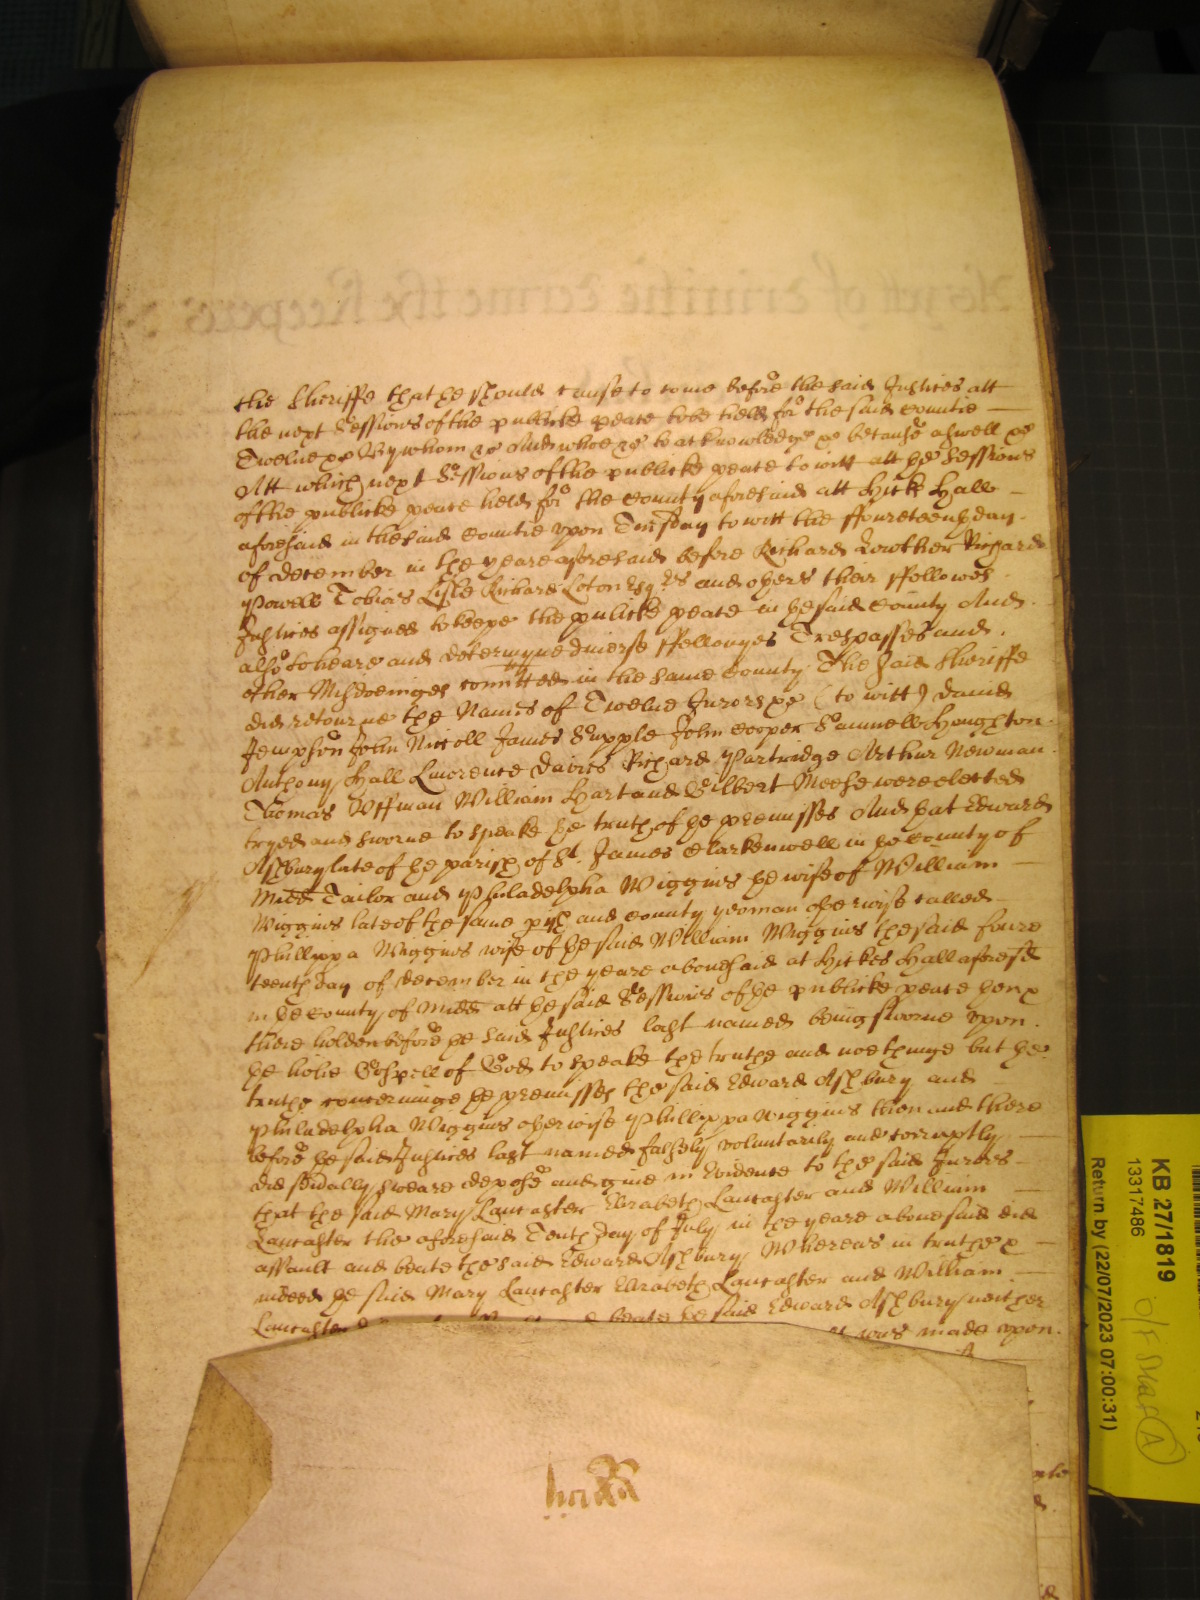 the Sheriffe that he should cause to come before the said Justices att
the next Sessions of the publicke peace to be held for the said Countie
Twelve &c By whom &c And whoe &c to acknowledge &c because aswell &c
Att which next Sessions of the publicke peace to witt att the Sessions
of the publicke peace held for the County aforesaid att Hicks Hall
aforesaid in the said Countie upon Tuesday to witt the ffoureteenth day
of December in the yeare aforesaid before Richard Lowther Richard
Powell Tobias Lisle Richard Loton Esqrs and others their ffellowes
Justices assigned to keepe the publicke peace in the said County And
also to heare and determyne diverse ffellonyes Trespasses and
other Misdoeinges comitted in the same County The said Sheriffe
did retourne the Names of Twelve Jurors &c (to witt) David
Jempson John Nicoll James Supple John Cooper Samuell Houghton
Anthony Hall Lawrence Davies Richard Partridge Arthur Newman
Thomas Uffman William Hart and Gilbert Meese were elected
tryed and sworne to speake the truth of the premisses And that Edward
Ashbury late of the parish of St. James Clarkenwell in the County of
Midd Tailor and Philadelphia Wiggins the wife of William
Wiggins late of the same psh and County yeoman otherwise called
Phillippa Wiggins wife of the said William Wiggins the said foure
teenth day of December in the yeare abovesaid at Hickes Hall aforesd
in the County of Midd att the said Sessions of the publicke peace then &
there holden before the said Justices last named being sworne upon
the holie Gospell of God to speake the truthe and noe thinge but the
truthe concerninge the premisses the said Edward Ashbury and
Philadelphia Wiggins otherwise Phillippa Wiggins then and there
before the said Justices last named falsely voluntarily and corruptly
did sweare depose and give in Evidence to the said Jurors
that the said Mary Lancaster Elizabeth Lancaster and William
Lancaster the aforesaid Tenth day of July in the yeare abovesaid did
assault and beate the said Edward Ashbury Whereas in truthe &
indeed the said Mary Lancaster Elizabeth Lancaster and William
Lancaster beate the said Edward Ashbury neither
was made upon
KB 27/1819
13317486
Return by (22/07/2023 07:00:31)
A